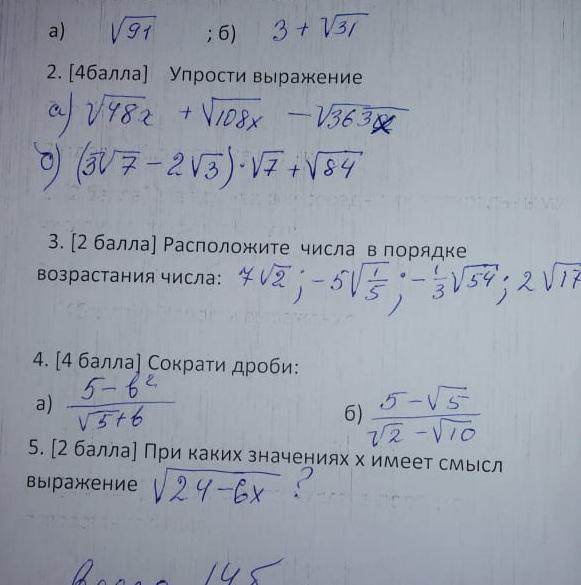 а) √91 ; б) 3 + √31
2. [4балла] Упрости выражение
а) √48x + √108x − √363x
б) (3√7 − 2√3)·√7 + √84
3. [2 балла] Расположите числа в порядке
возрастания числа: 7√2 ; −5√1/5 ; −1/3√54 ; 2√17
4. [4 балла] Сократи дроби:
а) 5 − b² / √5 + b б) 5 − √5 / √2 − √10
5. [2 балла] При каких значениях х имеет смысл
выражение √24 − 6x ?
Всего 14б